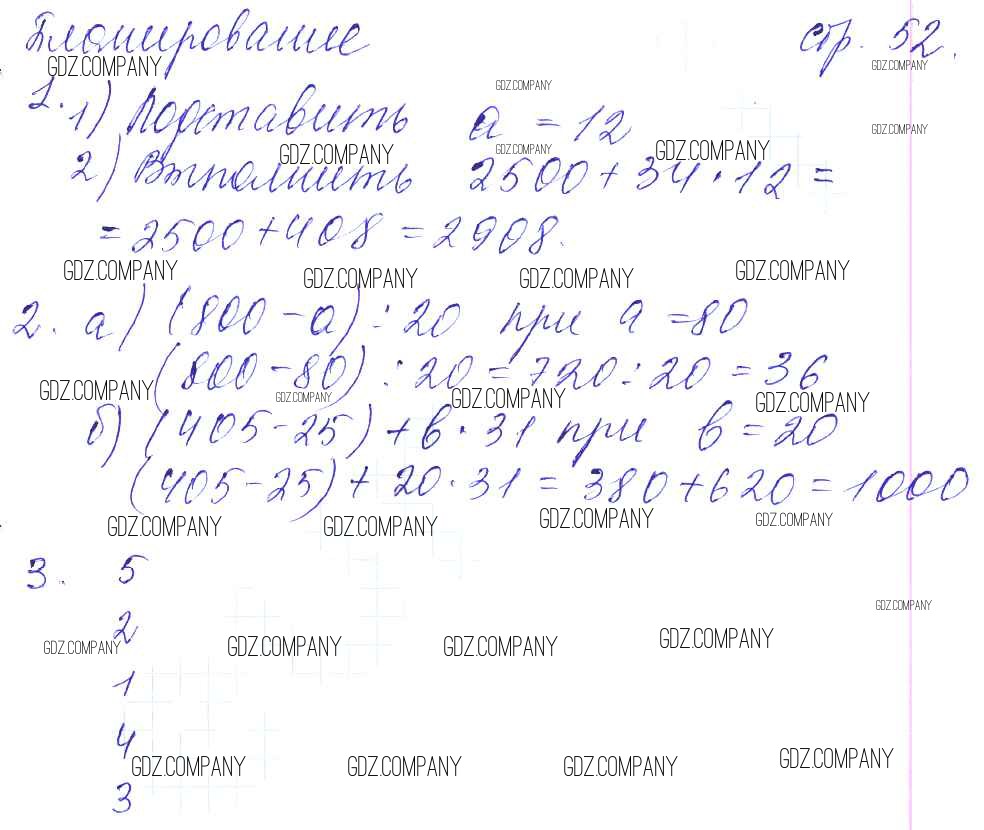 Планирование стр. 52.
GDZ.COMPANY GDZ.COMPANY
GDZ.COMPANY
1. 1) Подставить a = 12
GDZ.COMPANY
GDZ.COMPANY GDZ.COMPANY GDZ.COMPANY
2) Выполнить 2500 + 34 · 12 =
= 2500 + 408 = 2908.
GDZ.COMPANY GDZ.COMPANY GDZ.COMPANY GDZ.COMPANY
2. а) (800 - a) : 20 при a = 80
(800 - 80) : 20 = 720 : 20 = 36
GDZ.COMPANY GDZ.COMPANY GDZ.COMPANY GDZ.COMPANY
б) (405 - 25) + в · 31 при в = 20
(405 - 25) + 20 · 31 = 380 + 620 = 1000
GDZ.COMPANY GDZ.COMPANY GDZ.COMPANY GDZ.COMPANY
3. 5
GDZ.COMPANY
2
GDZ.COMPANY GDZ.COMPANY GDZ.COMPANY GDZ.COMPANY
1
4
GDZ.COMPANY GDZ.COMPANY GDZ.COMPANY GDZ.COMPANY
3